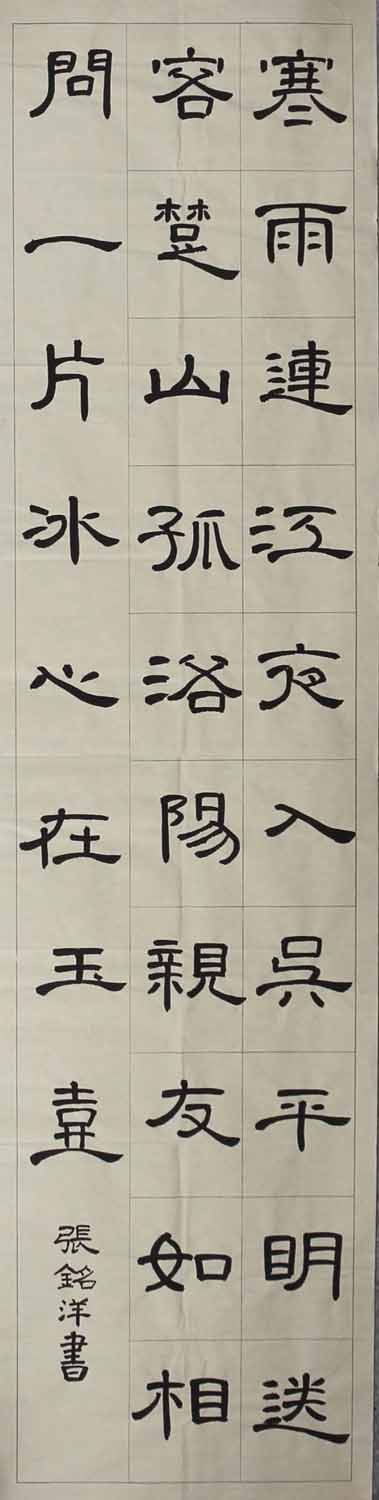 寒雨連江夜入吳平明送
客楚山孤洛陽親友如相
問一片冰心在玉壺
張銘洋書